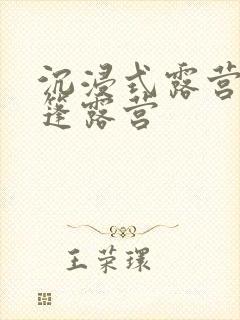 沉浸式露营
篷露营
王荣環